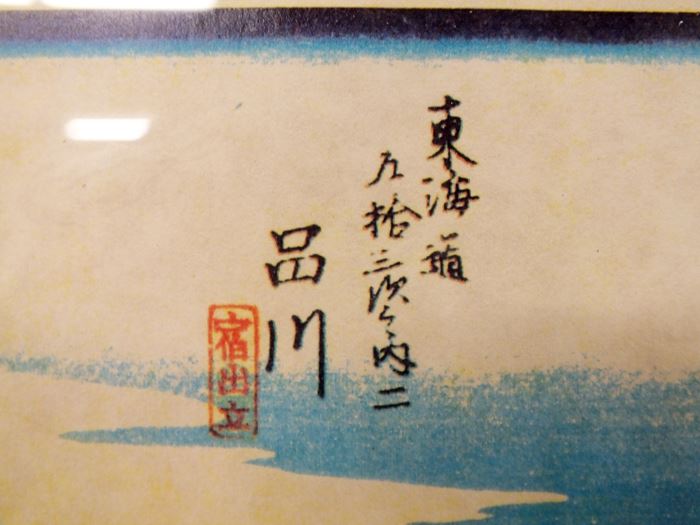 東海道
五拾三次之内 二
品川
宿出立